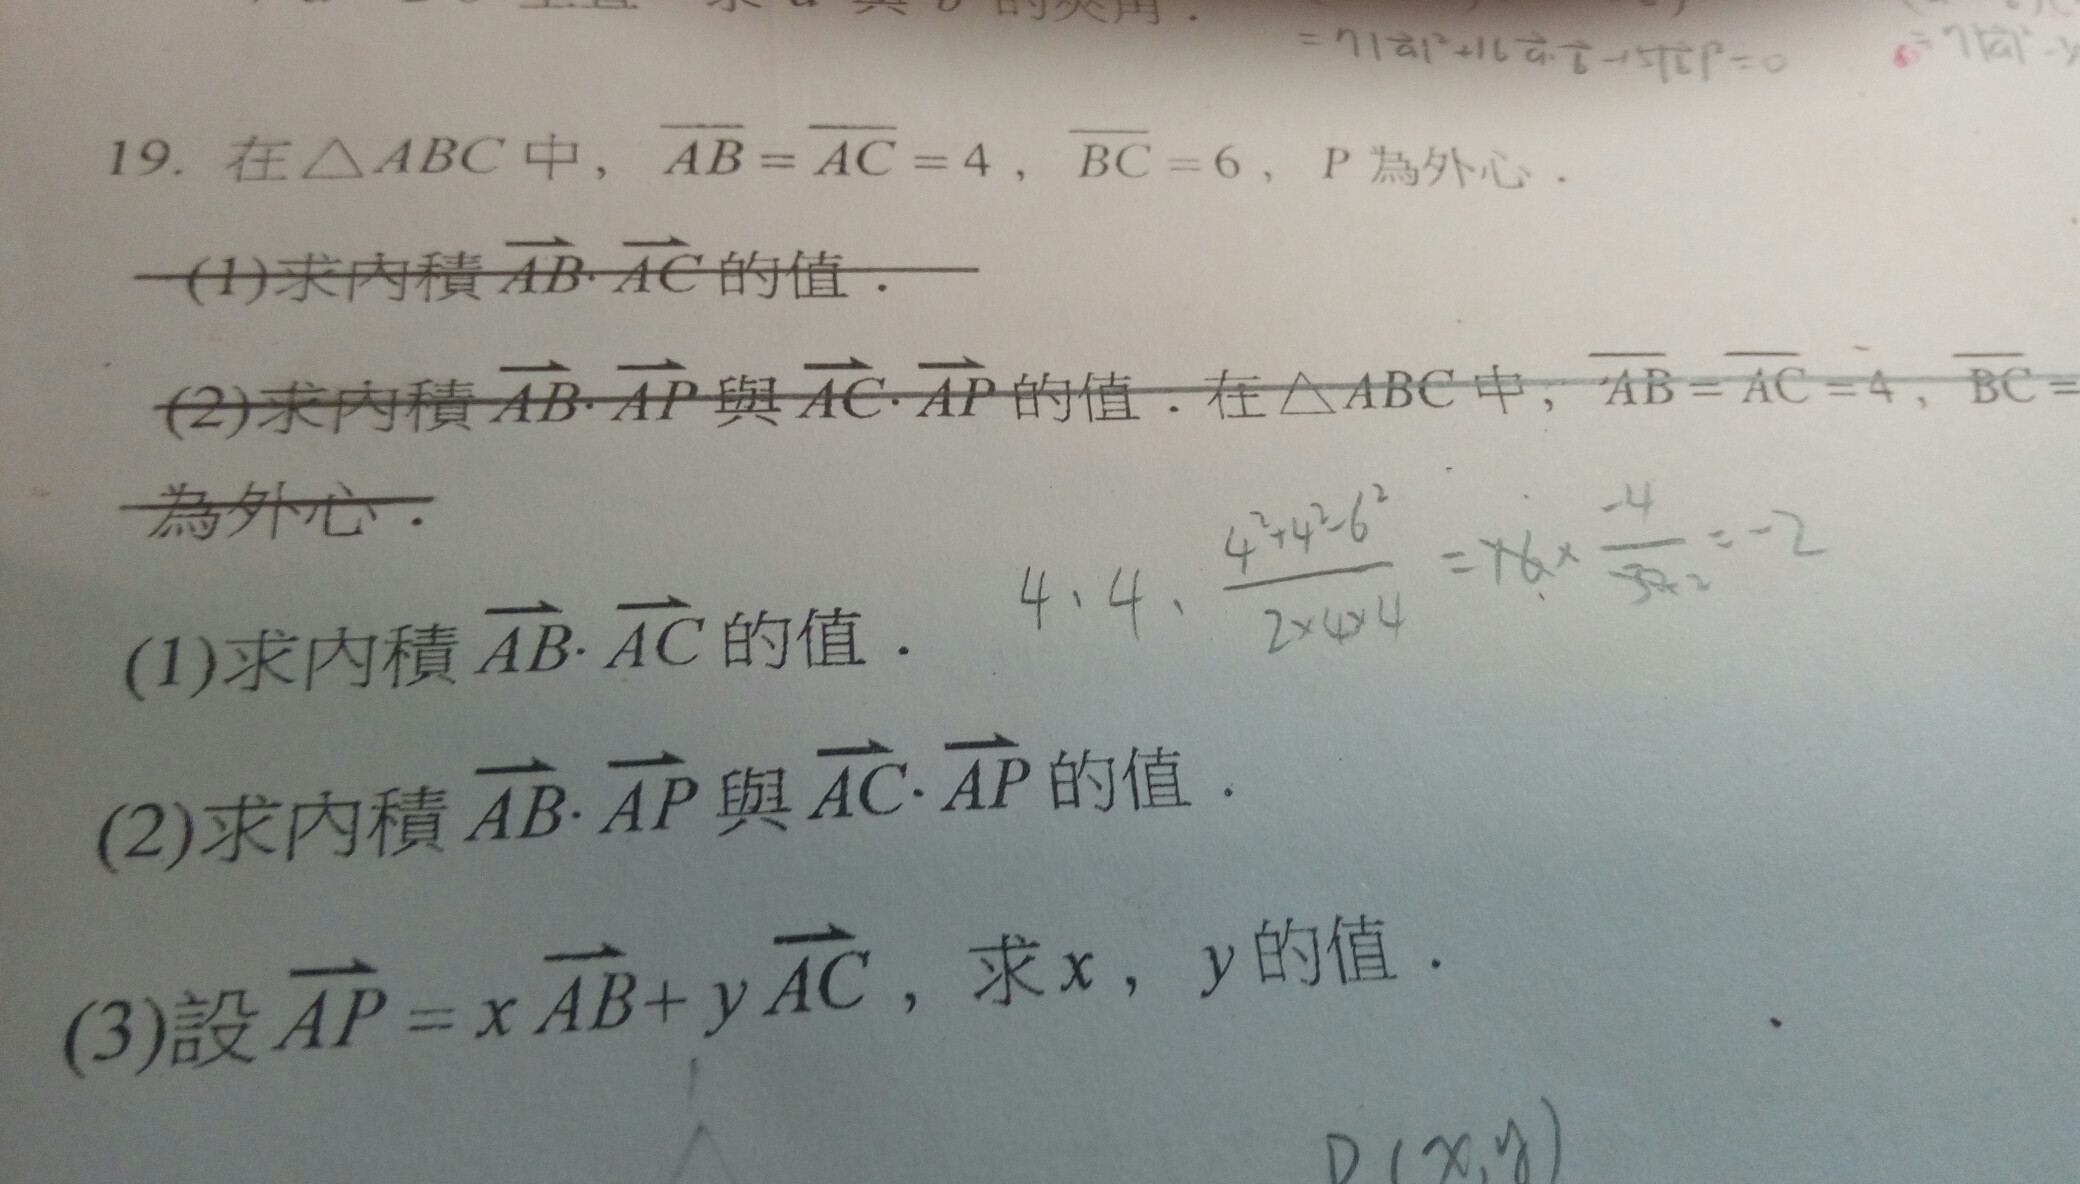 的夾角．
= 7|a|²+16 a·b-15|b|²=0
19. 在△ABC 中，AB = AC = 4，BC = 6，P 為外心．
(1)求內積 AB· AC 的值．
(2)求內積 AB· AP 與 AC· AP 的值．在△ABC 中，AB = AC = 4，BC =
為外心．
4、4、(4²+4²-6²)/(2×4×4) = 16× -4/32 = -2
(1)求內積 AB· AC 的值．
(2)求內積 AB· AP 與 AC· AP 的值．
(3)設 AP = x AB + y AC，求 x，y 的值．
P(x,y)